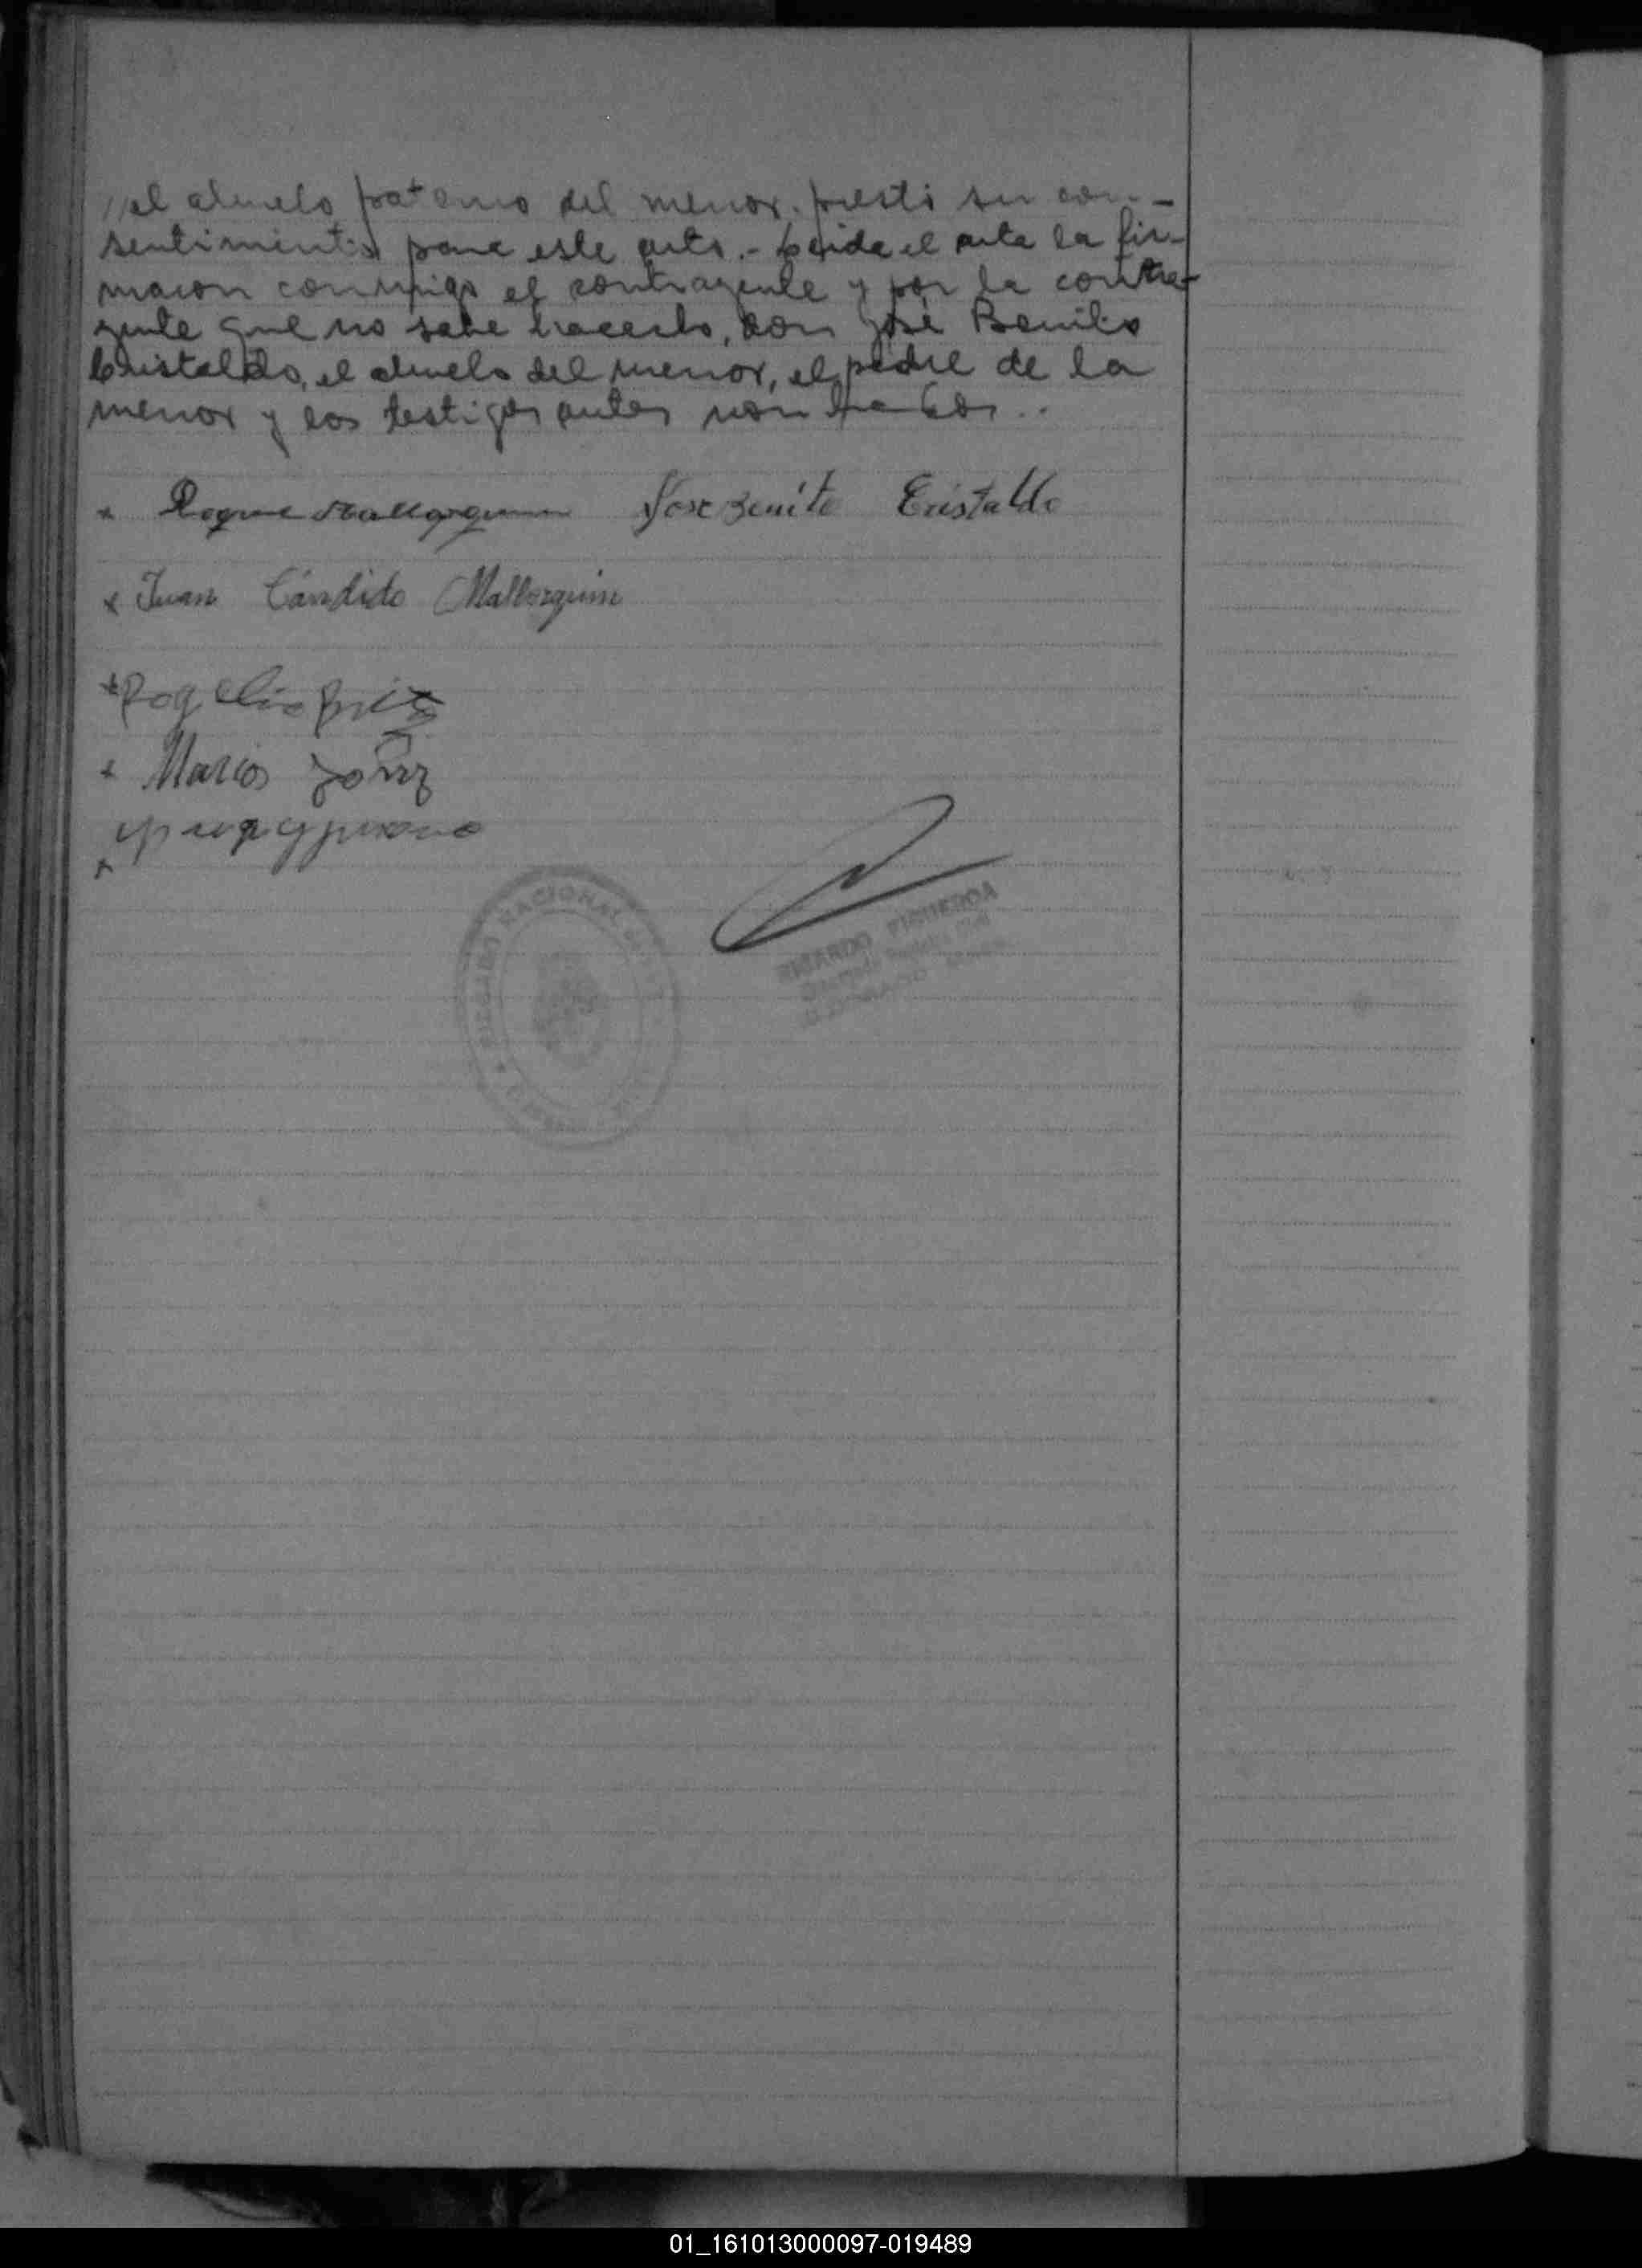 //el abuelo paterno del menor. prestó su con-
sentimiento para este acto.- Leida el acta la fir-
maron conmigo el contrayente y por la contra-
yente que no sabe hacerlo, don José Benito
Cristaldo, el abuelo del menor, el padre de la
menor y los testigos antes nombrados..
x Roque Mallorquin Jose Benito Cristaldo
x Juan Cándido Mallorquin
x Rogelio Britez
x Marcos
x
REGISTRO NACIONAL
RICARDO FIGUEROA
01_161013000097-019489